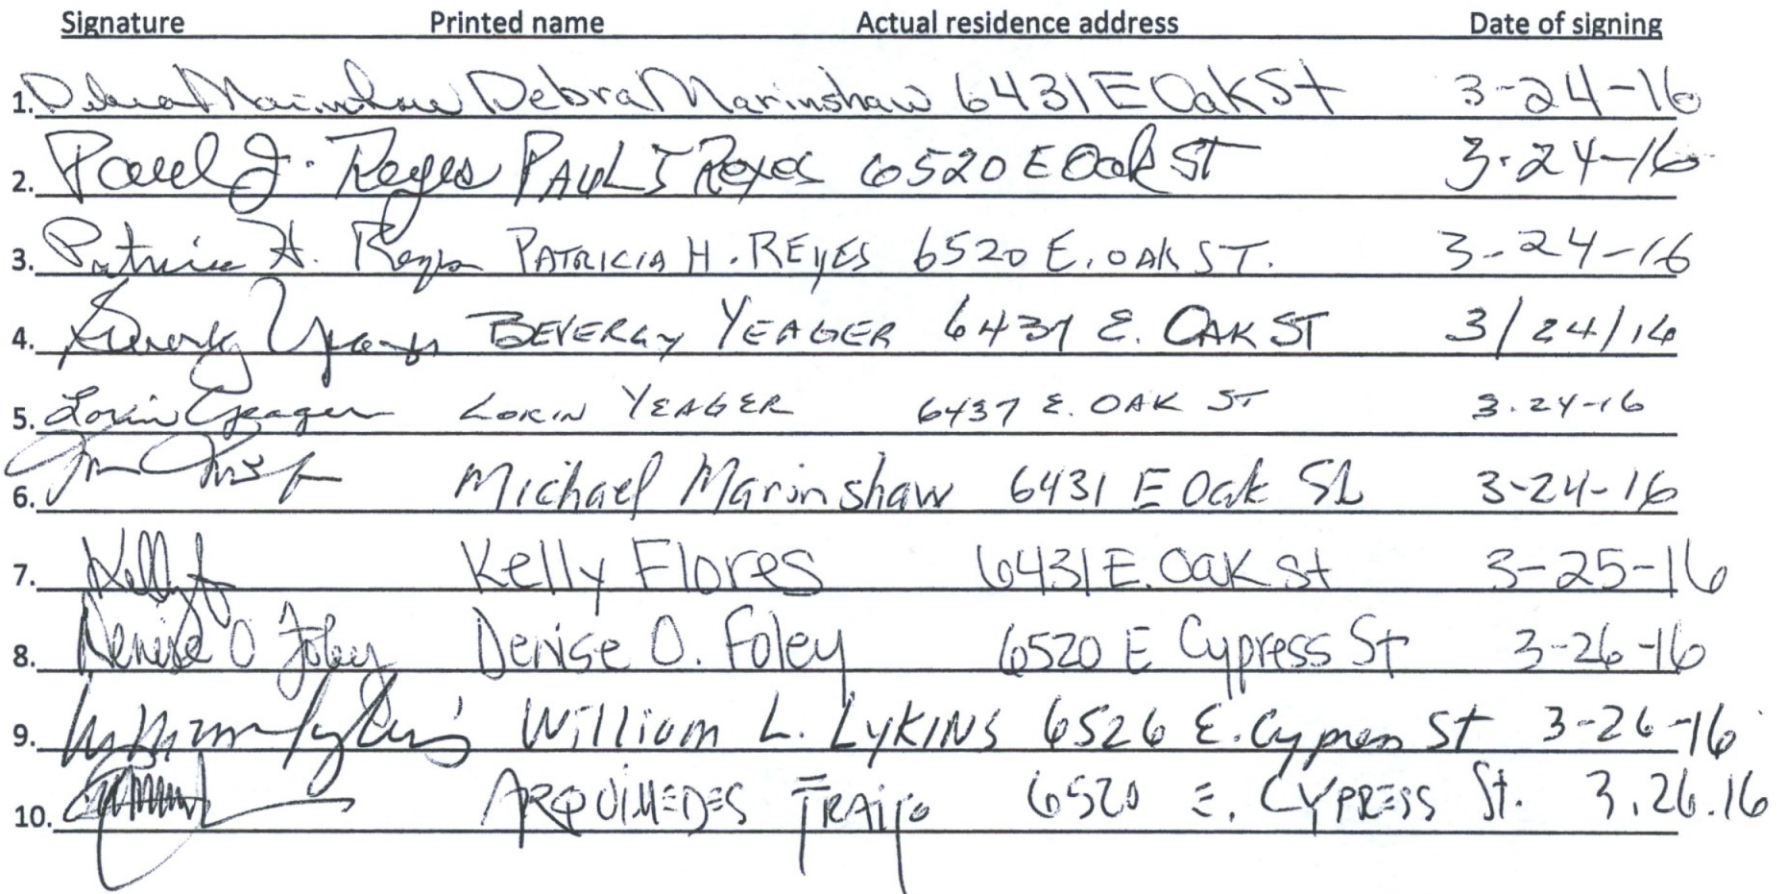 Signature Printed name Actual residence address Date of signing
1. Debra Marinshaw Debra Marinshaw 6431 E Oak St 3-24-16
2. Paul J. Reyes PAUL J Reyes 6520 E Oak ST 3-24-16
3. Patricia H. Reyes PATRICIA H. REYES 6520 E. OAK ST. 3-24-16
4. Beverly Yeager BEVERLY YEAGER 6437 E. OAK ST 3/24/16
5. Lorin Yeager LORIN YEAGER 6437 E. OAK ST 3.24-16
6. Michael Marinshaw 6431 E Oak St 3-24-16
7. Kelly Kelly Flores 6431 E. Oak St 3-25-16
8. Denise O Foley Denise O. Foley 6520 E Cypress St 3-26-16
9. William L. LYKINS 6526 E. Cypress St 3-26-16
10. ARQUIMEDES TRAIJO 6520 E. CYPRESS St. 3.26.16